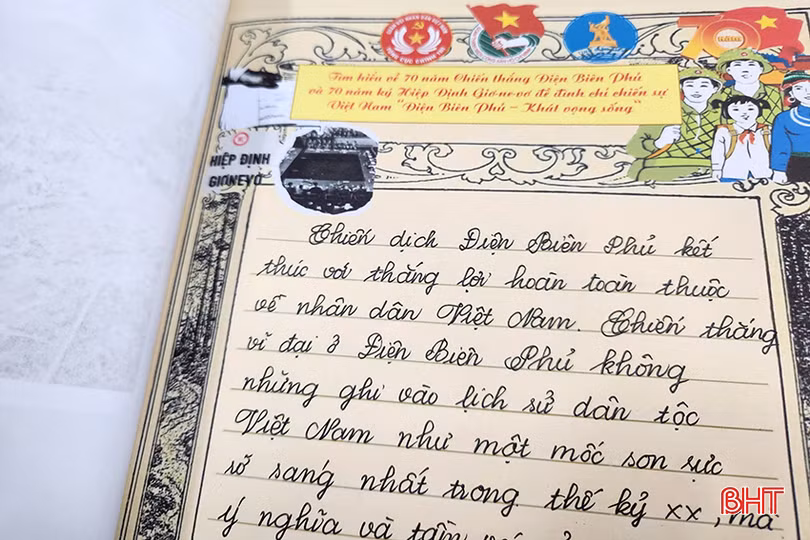 Tìm hiểu về 70 năm Chiến thắng Điện Biên Phủ
và 70 năm ký Hiệp Định Giơ-ne-vơ để đình chỉ chiến sự
Việt Nam "Điện Biên Phủ - Khát vọng sống"
70
HIỆP ĐỊNH
GIƠNEVƠ
Chiến dịch Điện Biên Phủ kết
thúc với thắng lợi hoàn toàn thuộc
về nhân dân Việt Nam. Chiến thắng
vĩ đại ở Điện Biên Phủ không
những ghi vào lịch sử dân tộc
Việt Nam như một mốc son rực
rỡ sáng nhất trong thế kỷ XX, mà
ý nghĩa và tầm
BHT